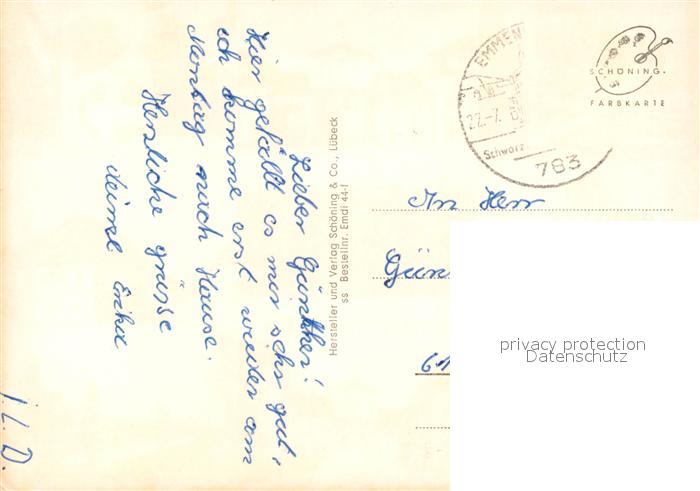 Lieber Günther!
Hier gefällt es mir sehr gut,
ich komme erst wieder am
Montag nach Hause.
Herzliche grüsse
deine Erika
I. L. D.
Hersteller und Verlag Schöning & Co., Lübeck
ss Bestellnr. Emdi 44-f
EMMEN
22.-7.
Schwarz
783
SCHÖNING.
FARBKARTE
An Herr
Gün
61
privacy protection
Datenschutz